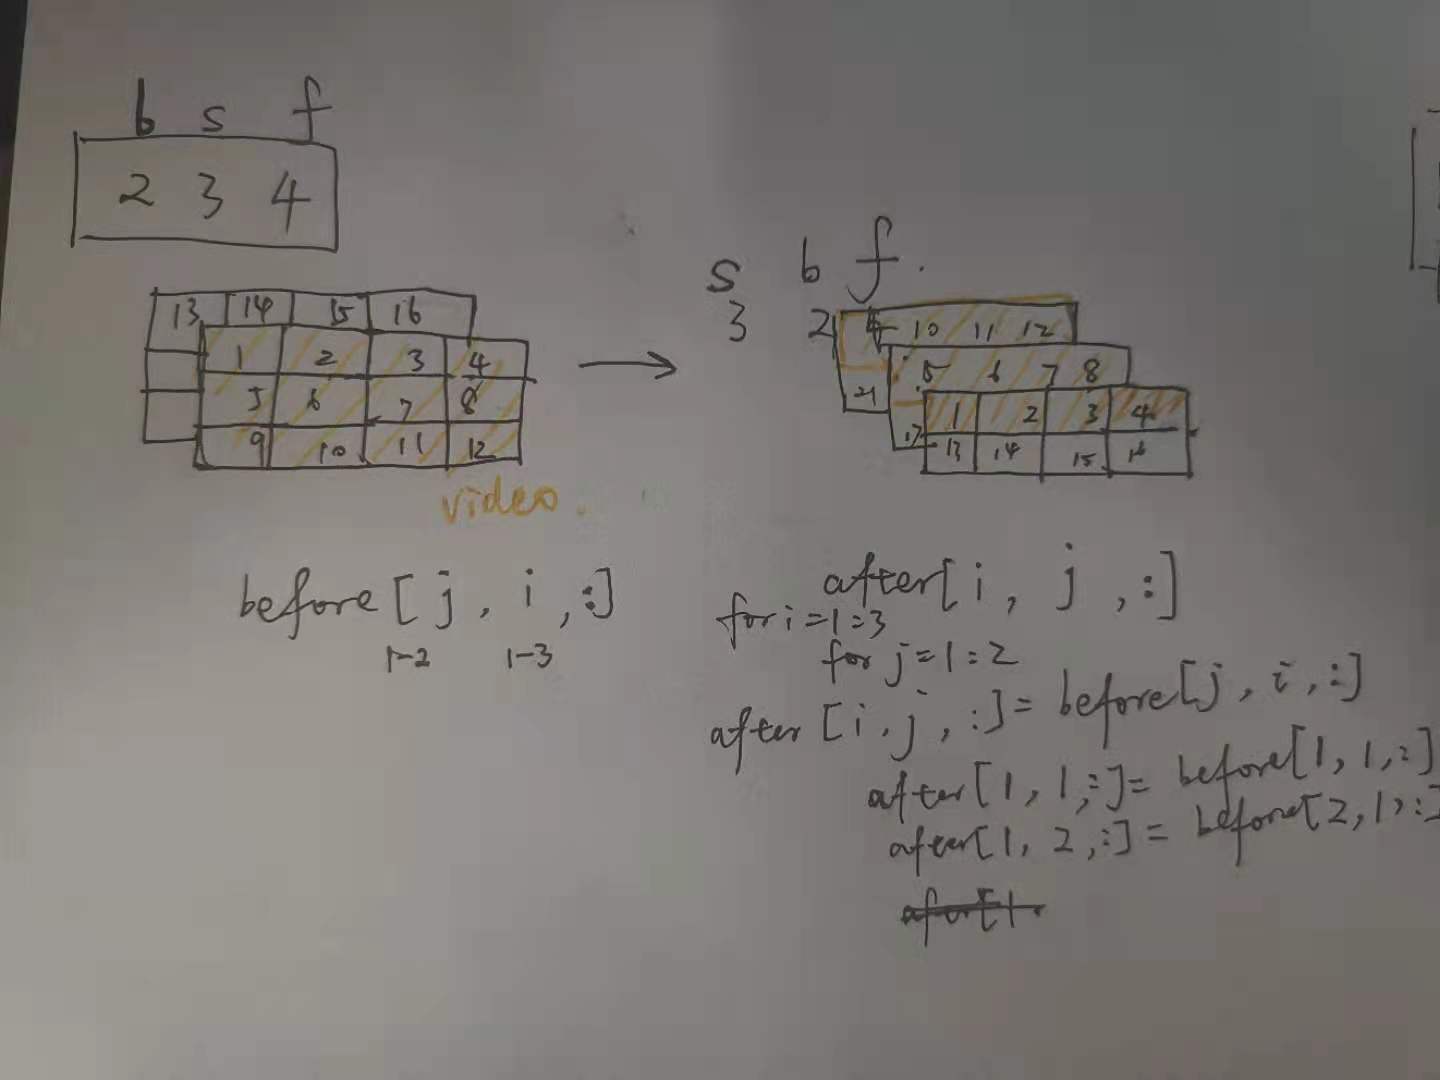 b s f
2 3 4
13 14 15 16
1 2 3 4
5 6 7 8
9 10 11 12
video.
before [j, i, :]
1-2 1-3
s b f.
3 2
10 11 12
5 6 7 8
21
1 2 3 4
17
13 14 15 16
after[i, j, :]
for i=1:3
for j=1:2
after [i, j, :] = before[j, i, :]
after[1, 1, :] = before[1, 1, :]
after[1, 2, :] = before[2, 1, :]